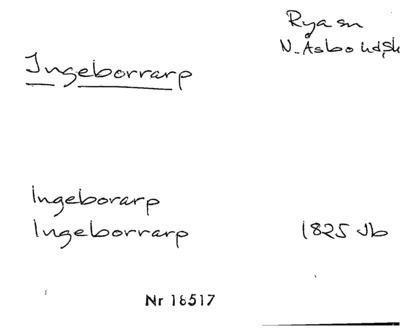 Rya sn
N. Åsbo hd, Sk
Ingeborrarp
Ingeborarp
Ingeborrarp 1825 Jb
Nr 18517